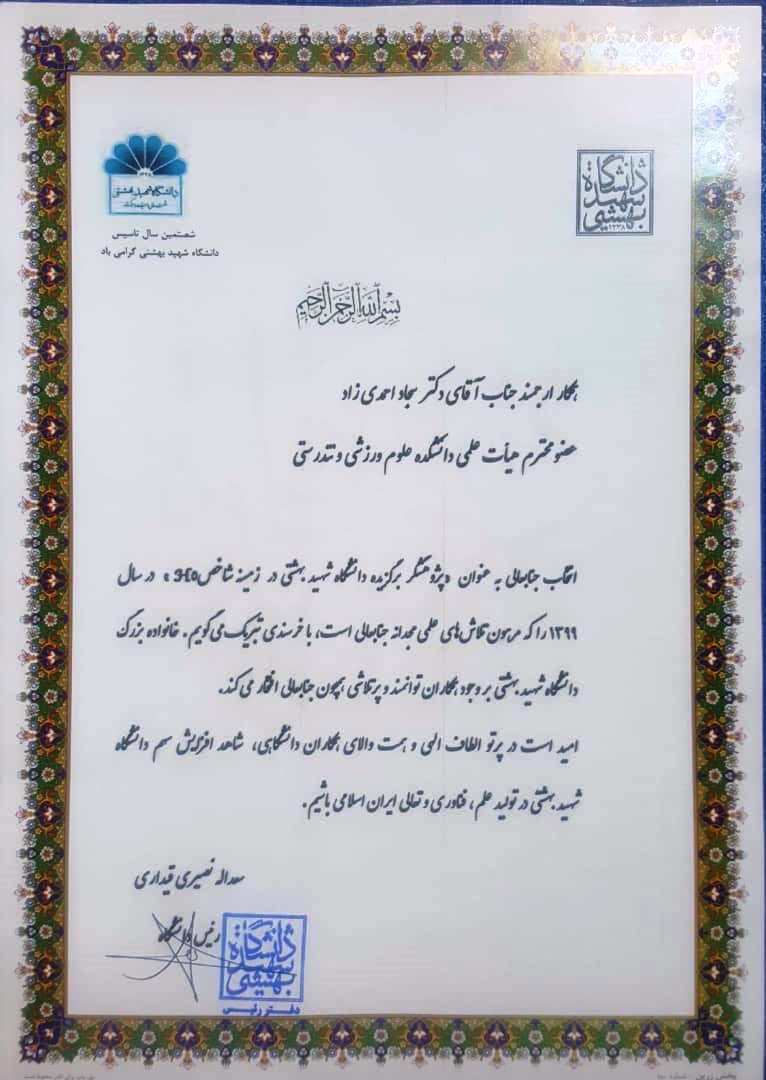 دانشگاه شهید بهشتی
۱۳۳۸
دانشگاه شهید بهشتی
شصتمین سال تاسیس
دانشگاه شهید بهشتی گرامی باد
بسم الله الرحمن الرحیم
همکار ارجمند جناب آقای دکتر سجاد احمدی زاد
عضو محترم هیأت علمی دانشکده علوم ورزشی و تندرستی
انتخاب جنابعالی به عنوان «پژوهشگر برگزیده دانشگاه شهید بهشتی در زمینه شاخص H-G» در سال
۱۳۹۹ را که مرهون تلاش‌های علمی مجدانه جنابعالی است، با خرسندی تبریک می‌گویم. خانواده بزرگ
دانشگاه شهید بهشتی بر وجود همکاران توانمند و پرتلاشی همچون جنابعالی افتخار می‌کند.
امید است در پرتو الطاف الهی و همت والای همکاران دانشگاهی، شاهد افزایش سهم دانشگاه
شهید بهشتی در تولید علم، فناوری و تعالی ایران اسلامی باشیم.
سعداله نصیری قیداری
رئیس دانشگاه
دانشگاه شهید بهشتی
دفتر رئیس